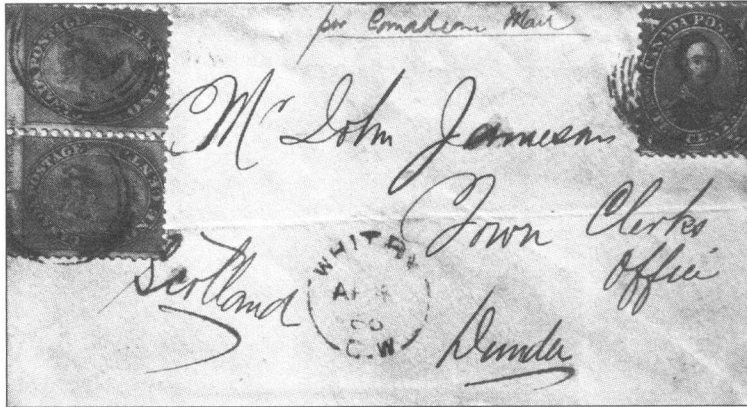 per Canadian Mail
CANADA POSTAGE
CANADA POSTAGE
Mr John Jameson
Town Clerks
Office
Scotland
WHITBY
AP
60
C.W
Dundee